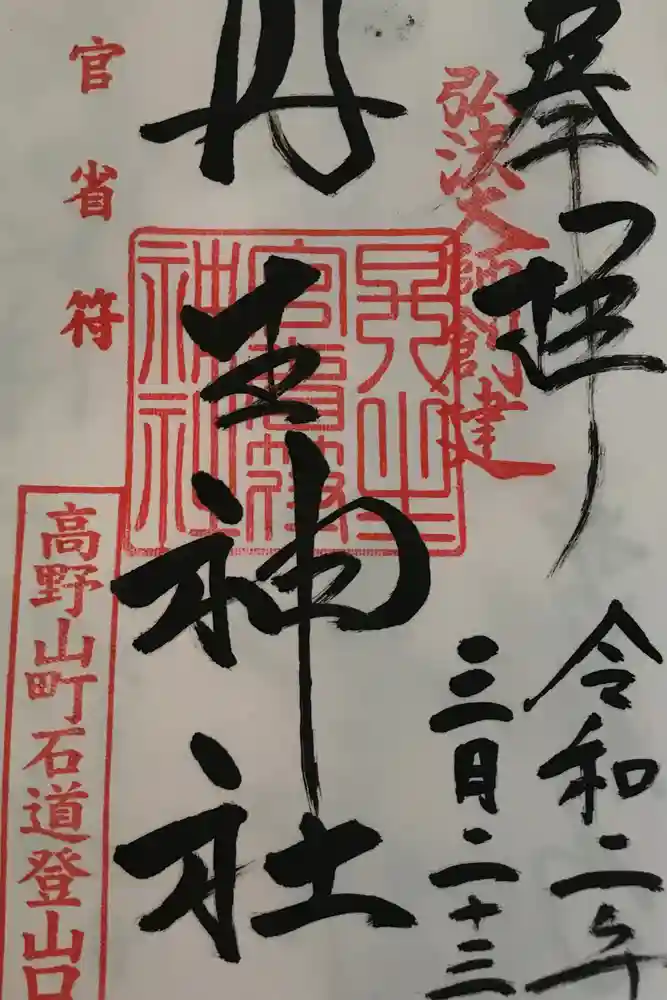 奉拝
弘法大師創建
令和二年
三月二十三
丹生神社
官省符
丹生官省符神社
高野山町石道登山口